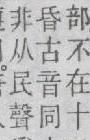 部不在十
昏古音同
非从民聲